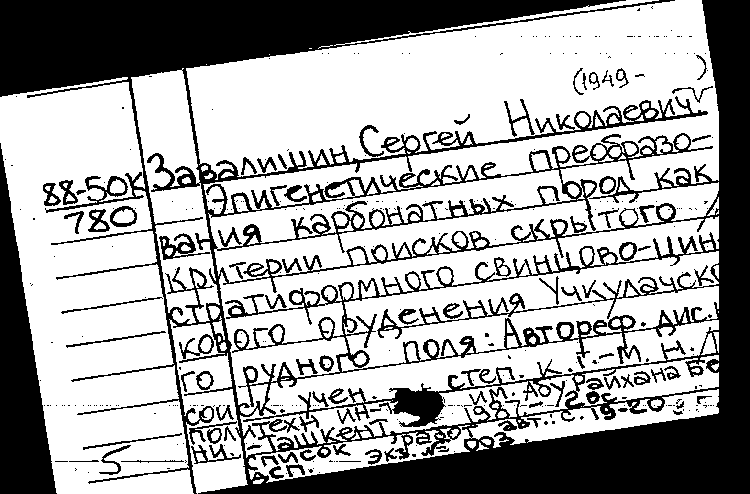 (1949- )
88-50К Завалишин, Сергей Николаевич
780 Эпигенетические преобразо-
вания карбонатных пород как
критерии поисков скрытого
стратиформного свинцово-цин-
кового оруденения Учкулачско
го рудного поля: Автореф. дис.
соиск. учен. степ. к. г.-м. н. /
политехн. ин-т им. Абу Райхана Бе
ни. - Ташкент, 1987. - 20 с.
список работ авт.: с. 19-20
5 дсп. экз. № 003.